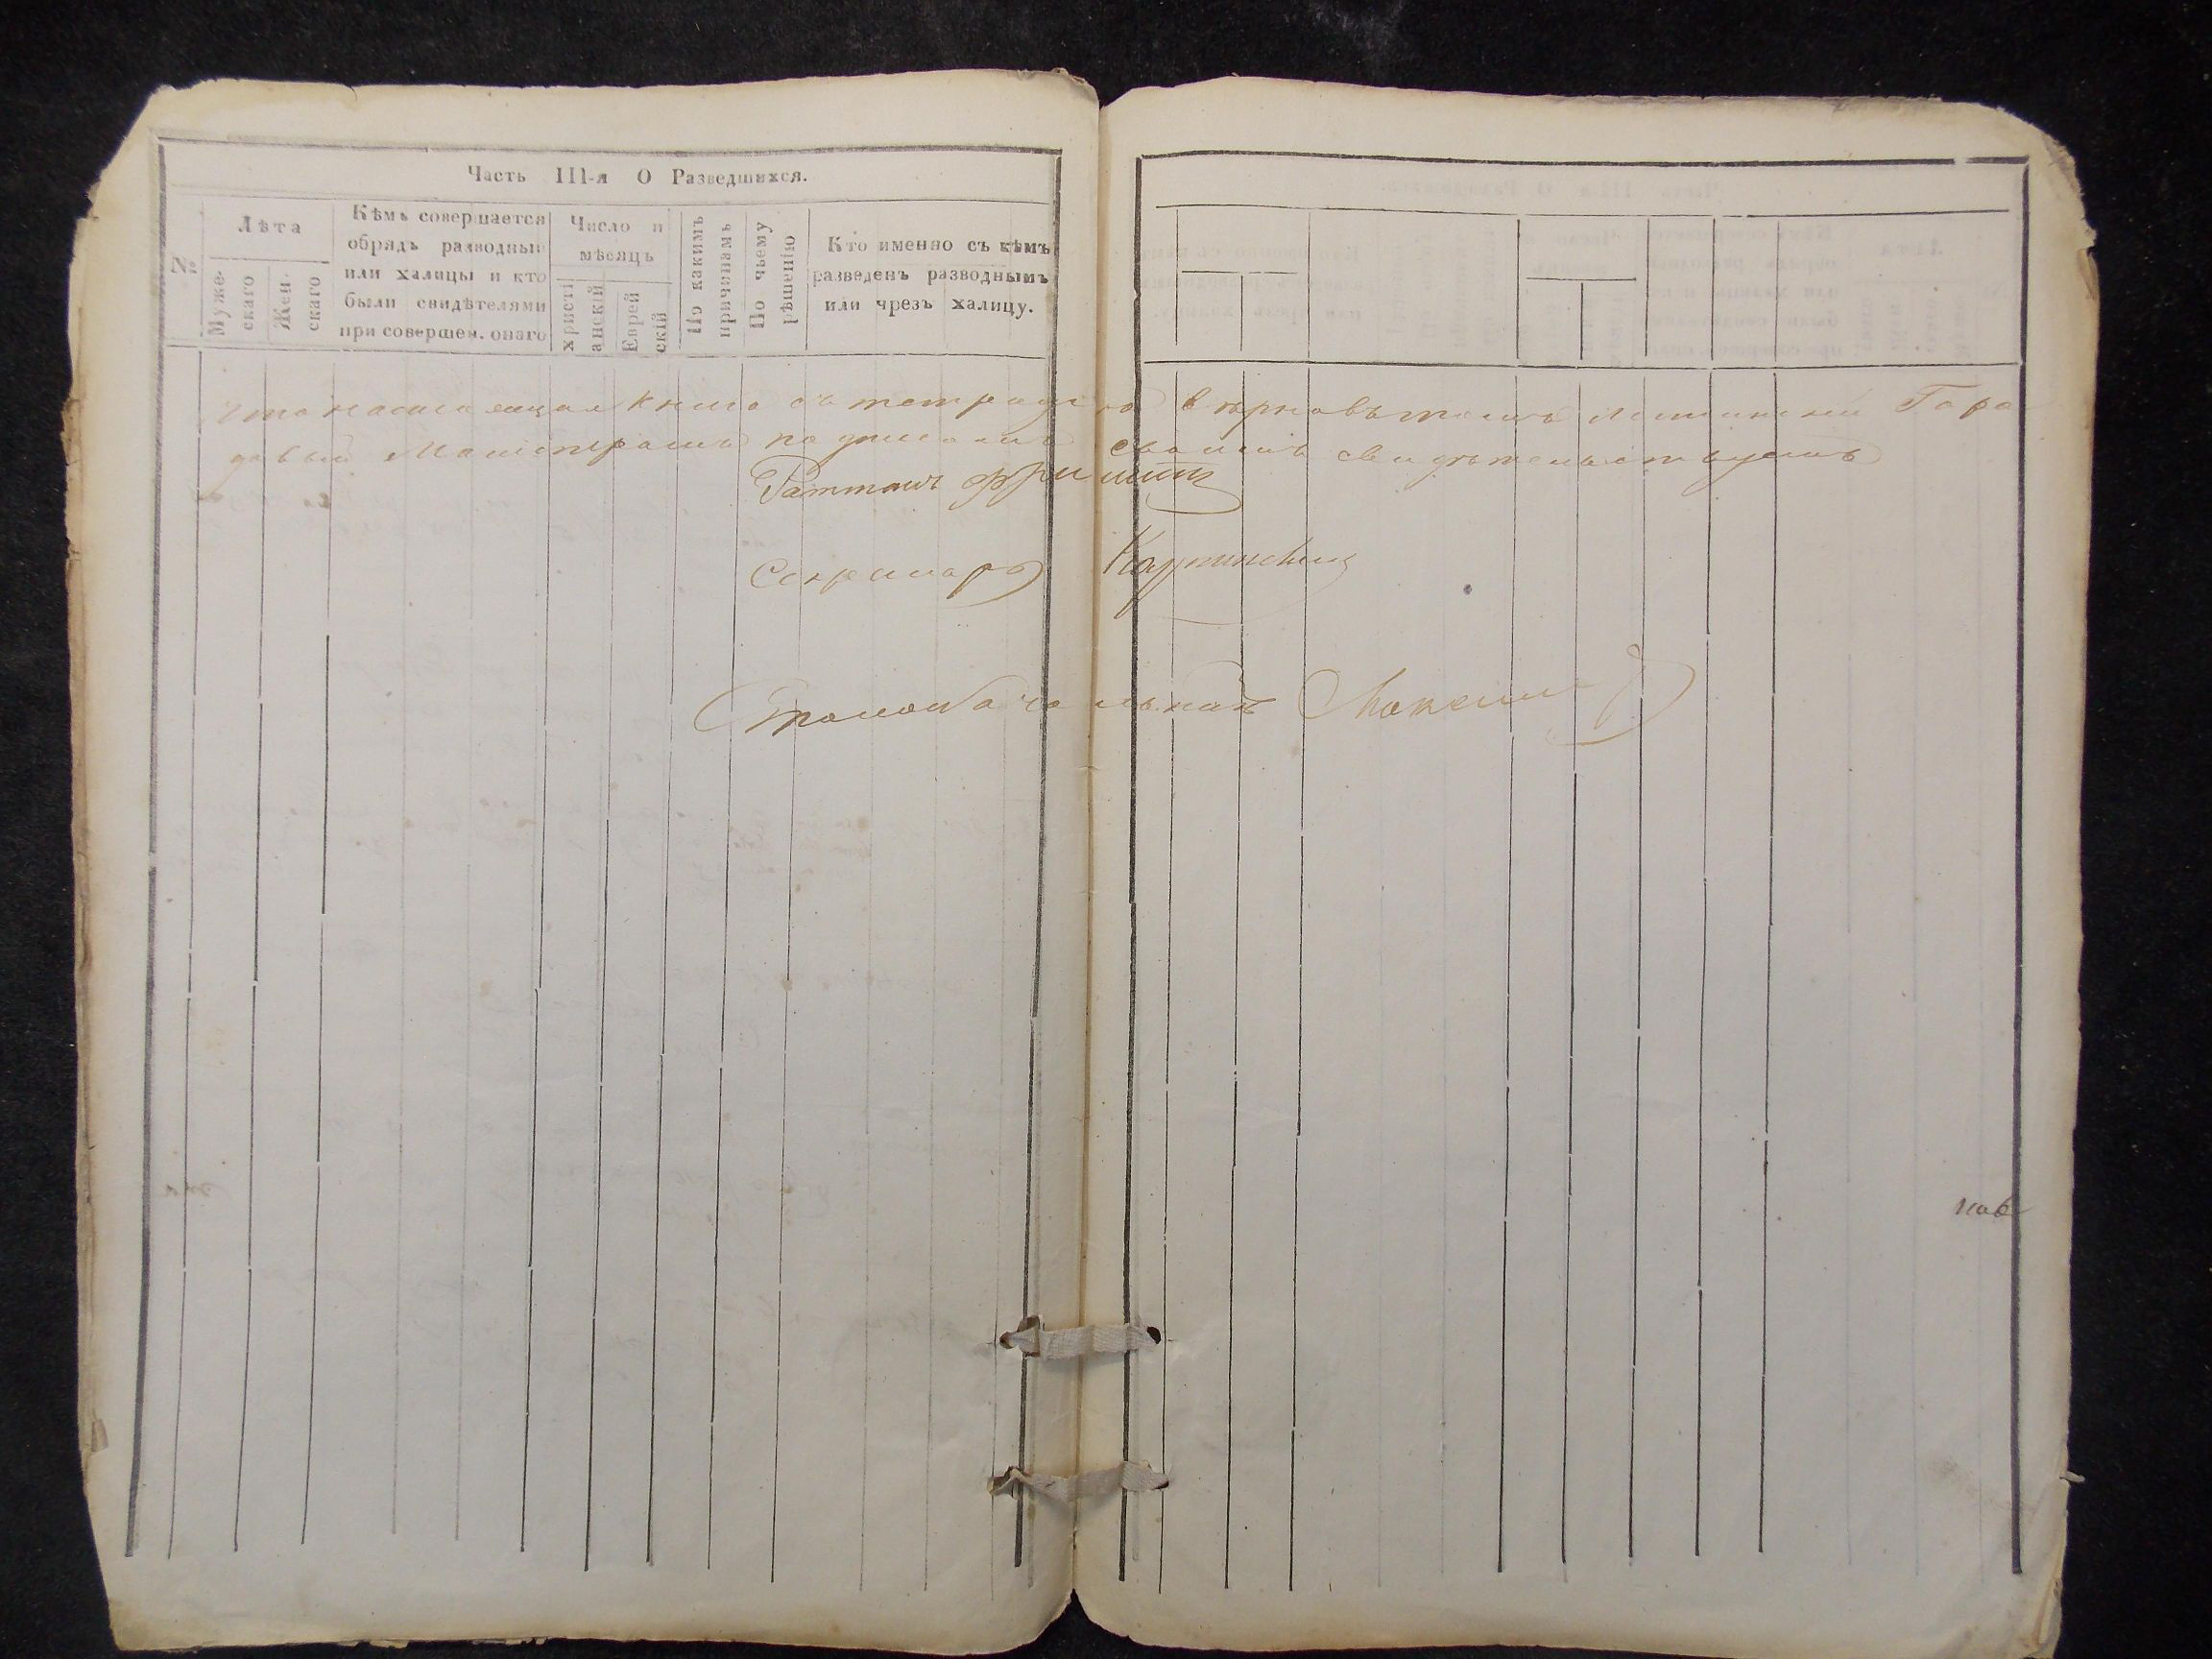 Часть III-я О Разведшихся.
№
Лѣта
Муже-
скаго
Жен.
скаго
Кѣмъ совершается
обрядъ разводный
или халицы и кто
были свидѣтелями
при совершен. онаго
Число и
мѣсяцъ
христі
анскій
Еврей
скій
По какимъ
причинамъ
По чьему
рѣшенію
Кто именно съ кѣмъ
разведенъ разводнымъ
или чрезъ халицу.
Что настоящая книга съ тетрадью вѣрна въ томъ Городо
вый Магистратъ подписомъ своимъ свидѣтельствуетъ
Ратманъ
Секретарь
Столоначальникъ